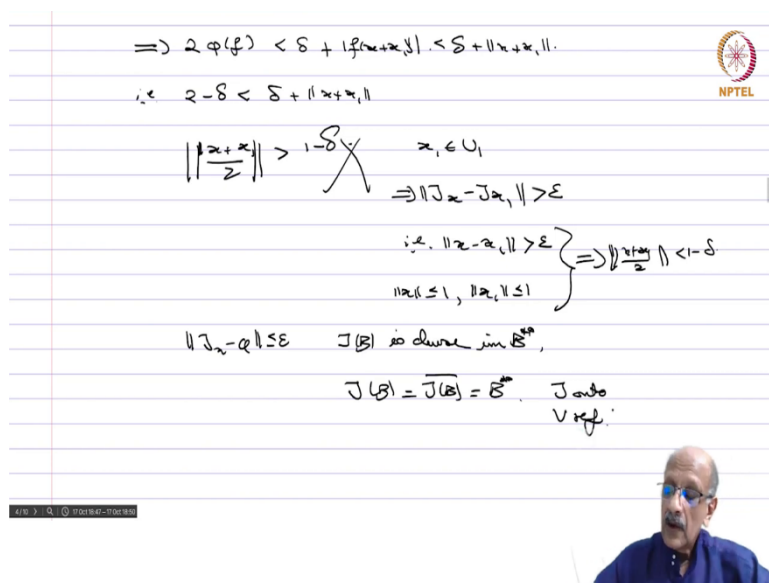 => 2φ(f) < δ + |f(x+x₁)| < δ + ||x+x₁||.
i.e. 2-δ < δ + ||x+x₁||
||(x+x₁)/2|| > 1-δ. x₁ ∈ U₁
=> ||Jx - Jx₁|| > ε
i.e. ||x-x₁|| > ε
||x|| ≤ 1, ||x₁|| ≤ 1 } => ||(x+x₁)/2|| < 1-δ
||Jx - φ|| ≤ ε J(B) is dense in B**,
J(B) = \overline{J(B)} = B**. J onto
V ref.
NPTEL
4/10 17 Oct 18:47 – 17 Oct 18:50